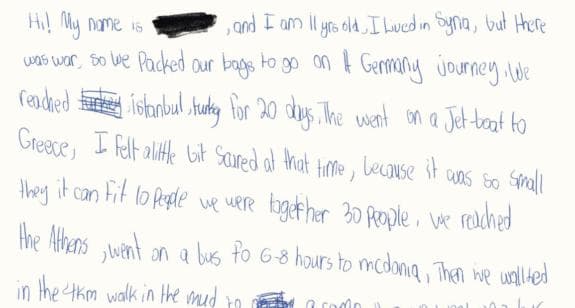 Hi! My name is , and I am 11 yrs old, I lived in Syria, but there
was war, so we Packed our bags to go on A Germany journey, We
reached istanbul, turky for 20 days, The went on a Jet-boat to
Greece, I felt alittle bit Scared at that time, because it was so Small
they it can Fit 10 People we were together 30 People, we reached
the Athens, went on a bus to 6-8 hours to mcdonia, Then we wallked
in the 4km walk in the mud to a camp